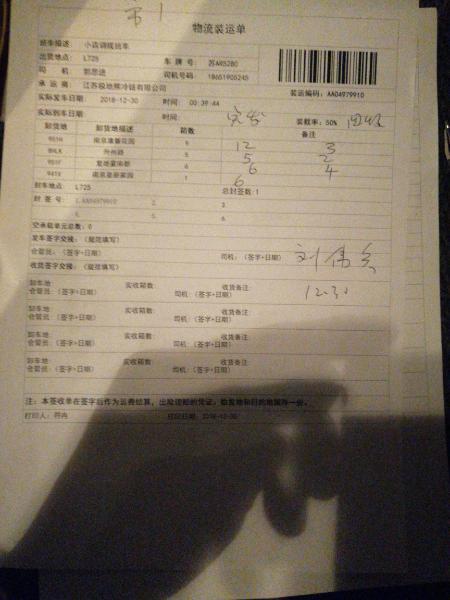 物流装运单
班车描述: 小店调拨班车
出货地点: L725 车牌号: 苏AR5280
司 机: 郭思进 司机号码: 18651905245
承 运 商: 江苏极地熊冷链有限公司
装运编码: AA04979910
实际发车日期: 2018-12-30 时间: 00:39:44
实际到车日期: 时间: 实发 装载率: 50% 回收
卸货地 卸货地描述 箱数 备注
12 3
5 2
6 4
6
封车地点: L725 总封签数:1
封 签 号: 1.AA04979910 2. 3
5. 6
空承载单元总数: 0
发车签字交接: (疑括填写)
仓管员: (签字+日期) 司机: (签字+日期) 刘伟
收货签字交接: (疑括填写)
12.30
卸车地: 实收箱数: 收货备注:
仓管员: (签字+日期) 司机: (签字+日期)
卸车地: 实收箱数: 收货备注:
仓管员: (签字+日期) 司机: (签字+日期)
卸车地: 实收箱数: 收货备注:
仓管员: (签字+日期) 司机: (签字+日期)
卸车地: 实收箱数: 收货备注:
仓管员: (签字+日期) 司机: (签字+日期)
注: 本签收单在签字后作为运费结算, 出险理赔的凭证, 始发地和目的地留存一份。
打印人: 符冉 打印日期: 2018-12-30